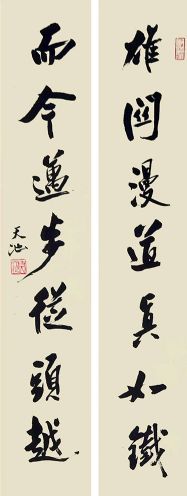 雄関漫道真如鐵
而今邁步從頭越
天池